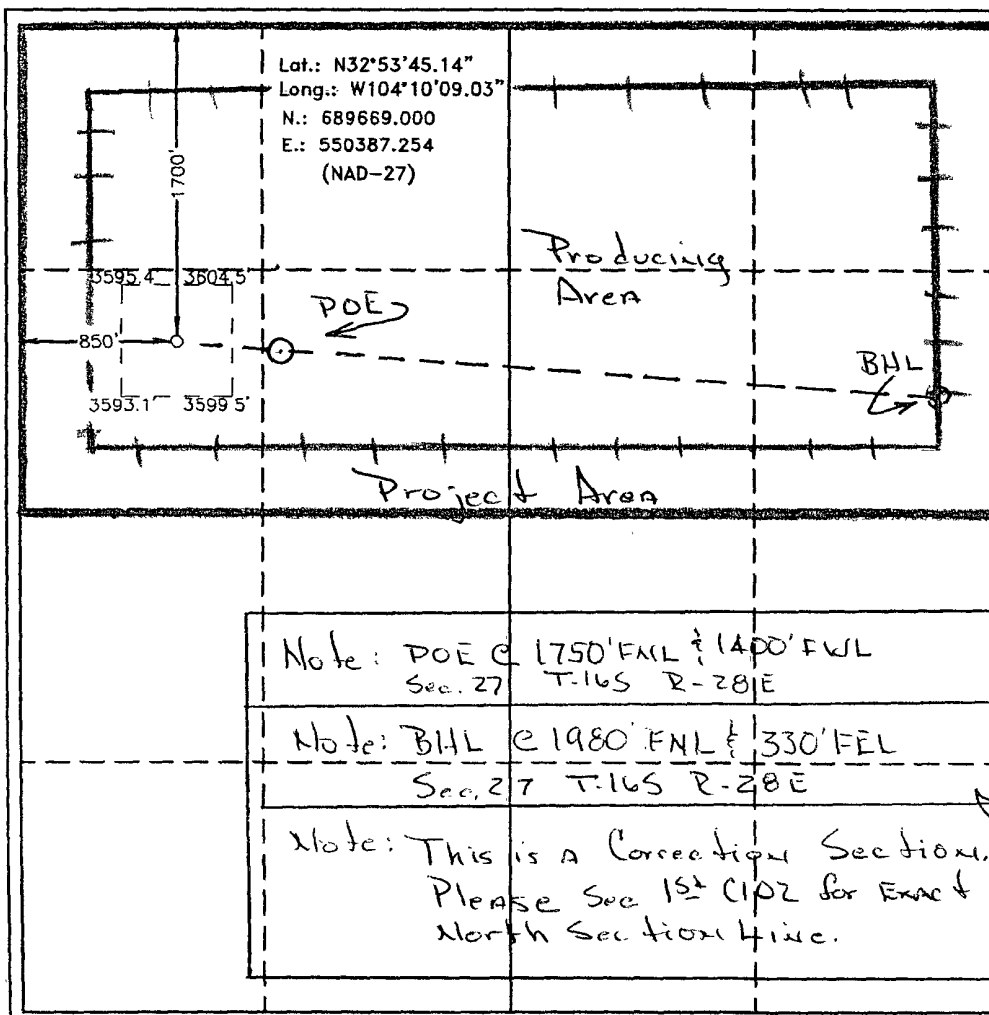 Lat.: N32°53'45.14"
Long.: W104°10'09.03"
N.: 689669.000
E.: 550387.254
(NAD-27)
1700'
Producing
Area
3595.4' 3604.5'
POE
850'
BHL
3593.1' 3599.5'
Project Area
Note: POE @ 1750' FNL & 1400' FWL
Sec. 27 T-16S R-28E
Note: BHL @ 1980' FNL & 330' FEL
Sec. 27 T-16S R-28E
Note: This is a Correction Section.
Please See 1st C102 for Exact
North Section Line.